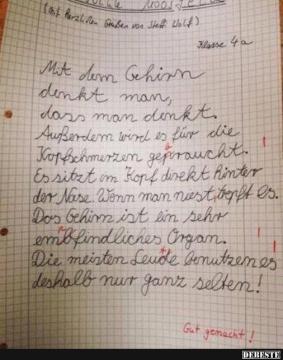 (Mit herzlichen Grüßen von Steff Wolf)
Klasse 4a
Mit dem Gehirn
denkt man,
dass man denkt.
Außerdem wird es für die
Kopfschmerzen gepraucht.
Es sitzt im Kopf direkt hinter
der Nase. Wenn man niest, tropft es.
Das Gehirn ist ein sehr
embfindliches Organ.
Die meisten Leude benutzen es
deshalb nur ganz selten!
Gut gemacht!
DEBESTE